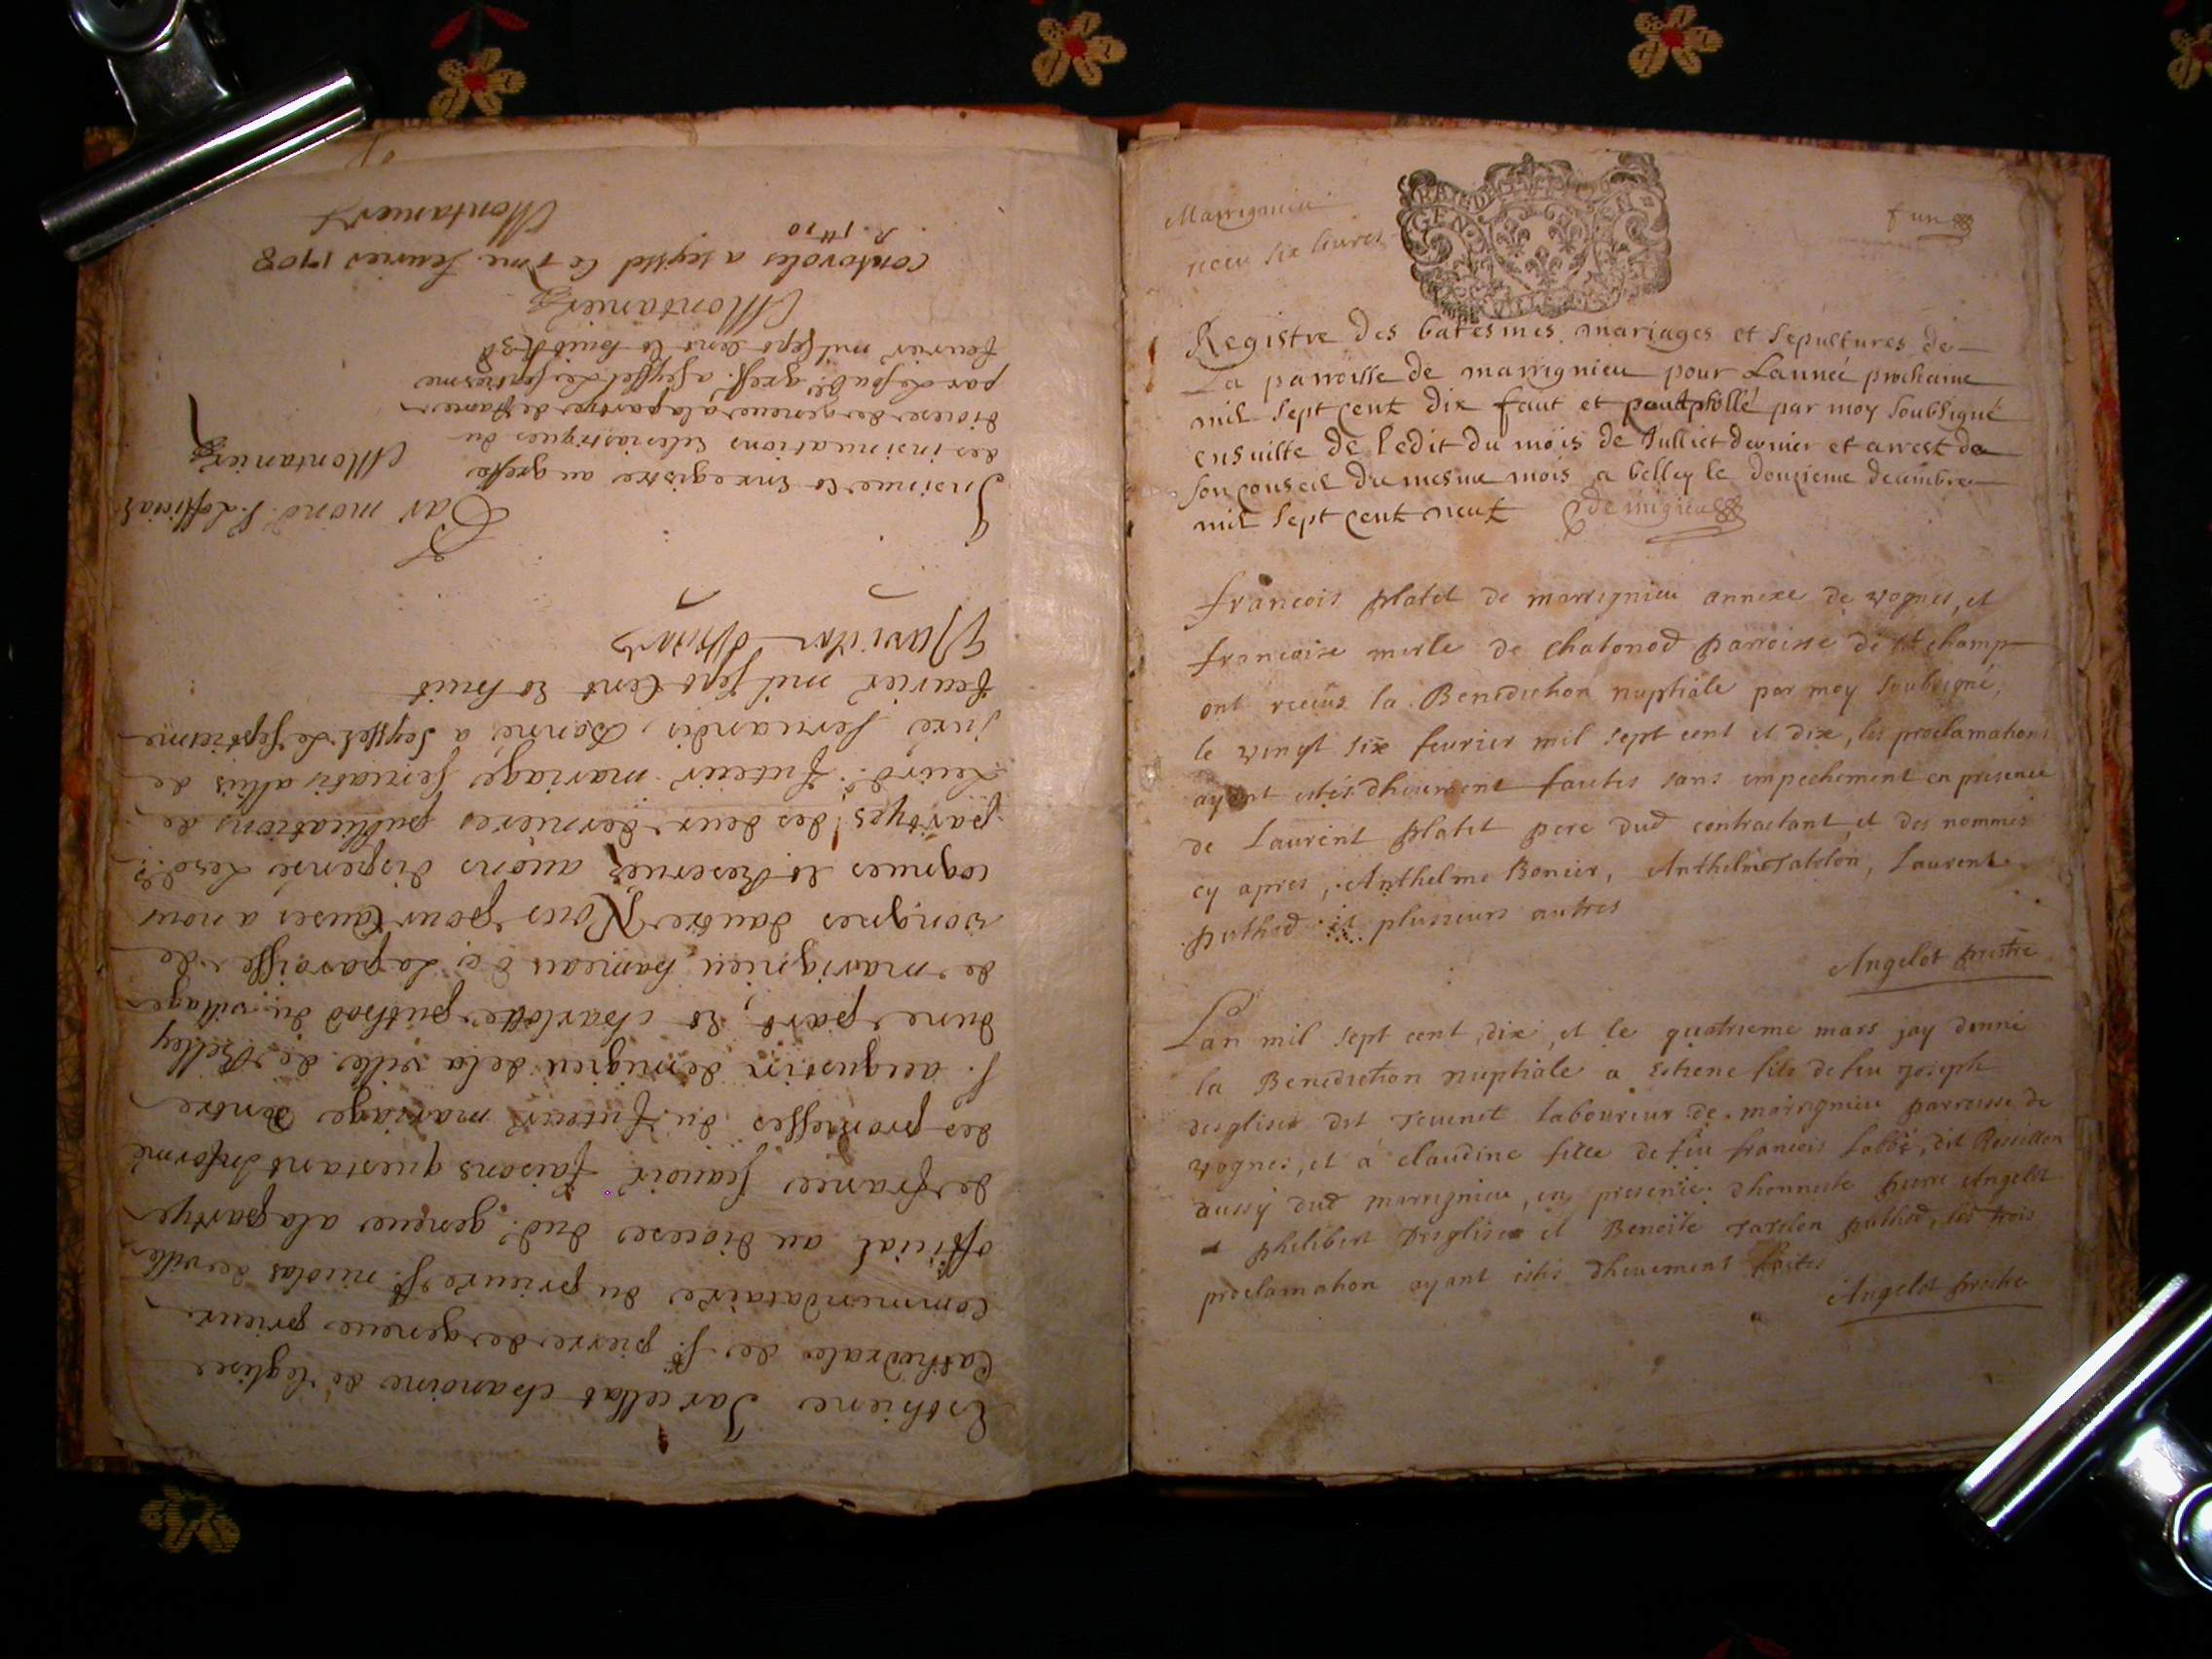 Esthiene Jarcellat chanoine de leglise
Cathedrale de St pierre de geneve prieur
Commendataire du prieuré St nicolas de ville
official au diocese dud. geneve a la partye
de france scavoir faisons questant Informé
des promesses du futeur mariage dentre
s. augustin demigieu de la ville de Belley
dune part, et charlotte puthod du village
de marignieu hameau de la paroisse de
vongnes dautre Nous pour Causes a nous
cognues et Reservez avons dispensé Lesd.
partyes des deux dernieres publications de
Leurd. futeur mariage servatis alliis de
jure servandis, Donné a Seyssel Le septieme
fevrier mil sept Cent et huit
official
Par mond. S. Lofficial
Montanier
Insinué et Enregistré au greffe
des insinuations Eclesiastiques du
diocese de geneve a la partye de france
par Le soub. greff. a Seyssel Le septiesme
fevrier mil sept Cent et huit
Montanier
controlé a seyssel le 7me fevrier 1708
Montanier
Marrignieu
receu six livres
GEN
f un
Registre des batesmes mariages et sepultures de
La parroisse de marrignieu pour Lannée prochaine
mil sept cent dix faut et parapholle par moy soubsigné
ensuitte de l edit du mois de Julliet dernier et arrest de
son conseil du mesme mois a belley le douzieme decembre
mil sept cent neuf demigieu
francois platet de marrignieu annexe de vognes, et
francoise merle de chatonod parroisse de St champ
ont receus la Benediction nuptiale par moy soubsigné,
le vingt six fevrier mil sept cent et dix, les proclamations
ayant estés dheument faites sans empechement en presence
de Laurent platet pere dud contractant et des nommés
cy apres, Anthelme Bonier, Anthelme Tardon, Laurent
puthod et plusieurs autres
Angelot prestre
Lan mil sept cent dix, et le quatrieme mars jay donné
la Benediction nuptiale a Estiene fils de feu joseph
desglises dit Tevenet laboureur de marrignieu parroisse de
vognes, et a claudine fille de feu francois labbé, dit Rossillon
aussy dud marrignieu, en presence dhonneste pierre Angelot
et philibert Desglises et Benoite Tardon puthod, les trois
proclamation ayant estés dheuement faites
Angelot prestre